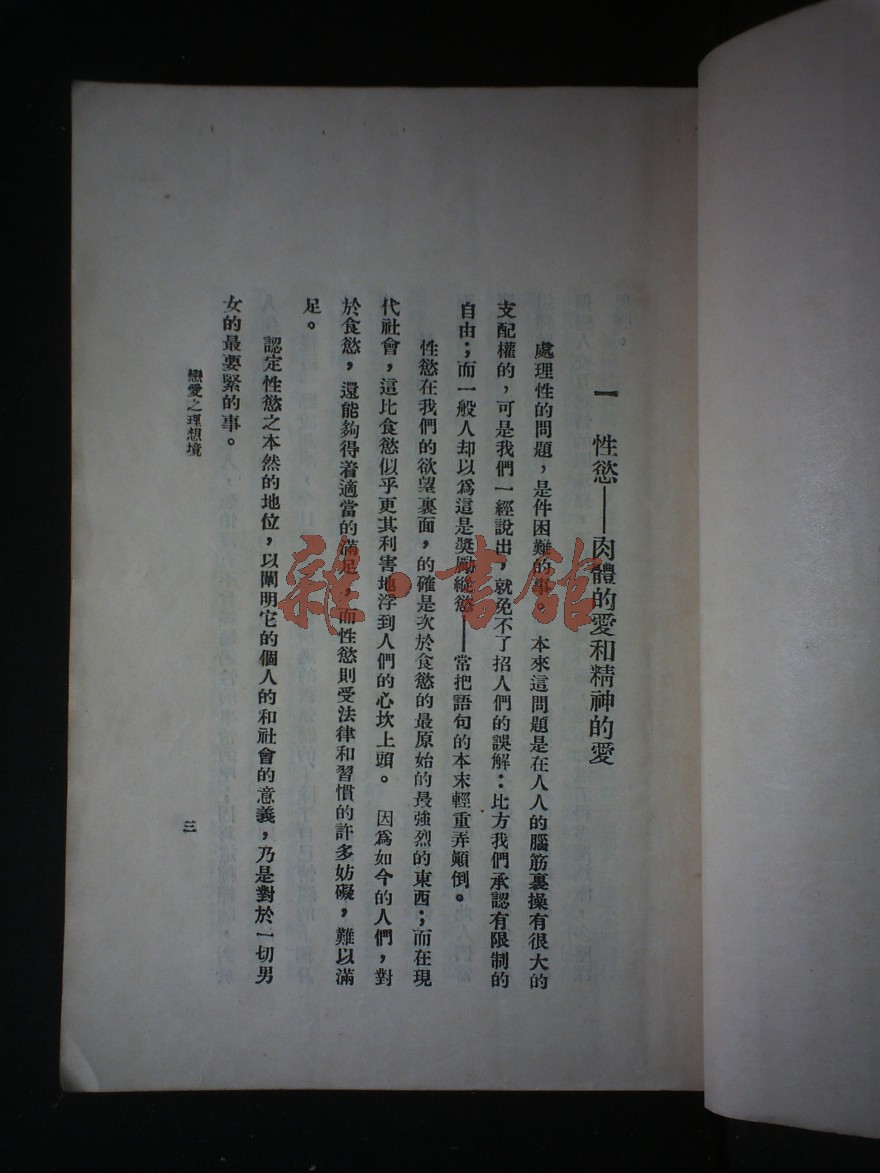 一　性慾——肉體的愛和精神的愛
處理性的問題，是件困難的事。本來這問題是在人人的腦筋裏操有很大的
支配權的，可是我們一經說出，就免不了招人們的誤解：比方我們承認有限制的
自由；而一般人却以爲這是獎勵縱慾——常把語句的本末輕重弄顚倒。
性慾在我們的欲望裏面，的確是次於食慾的最原始的最強烈的東西；而在現
代社會，這比食慾似乎更其利害地浮到人們的心坎上頭。因爲如今的人們，對
於食慾，還能夠得着適當的滿足，而性慾則受法律和習慣的許多妨礙，難以滿
足。
認定性慾之本然的地位，以闡明它的個人的和社會的意義，乃是對於一切男
女的最要緊的事。
戀愛之理想境
三
雜·書館